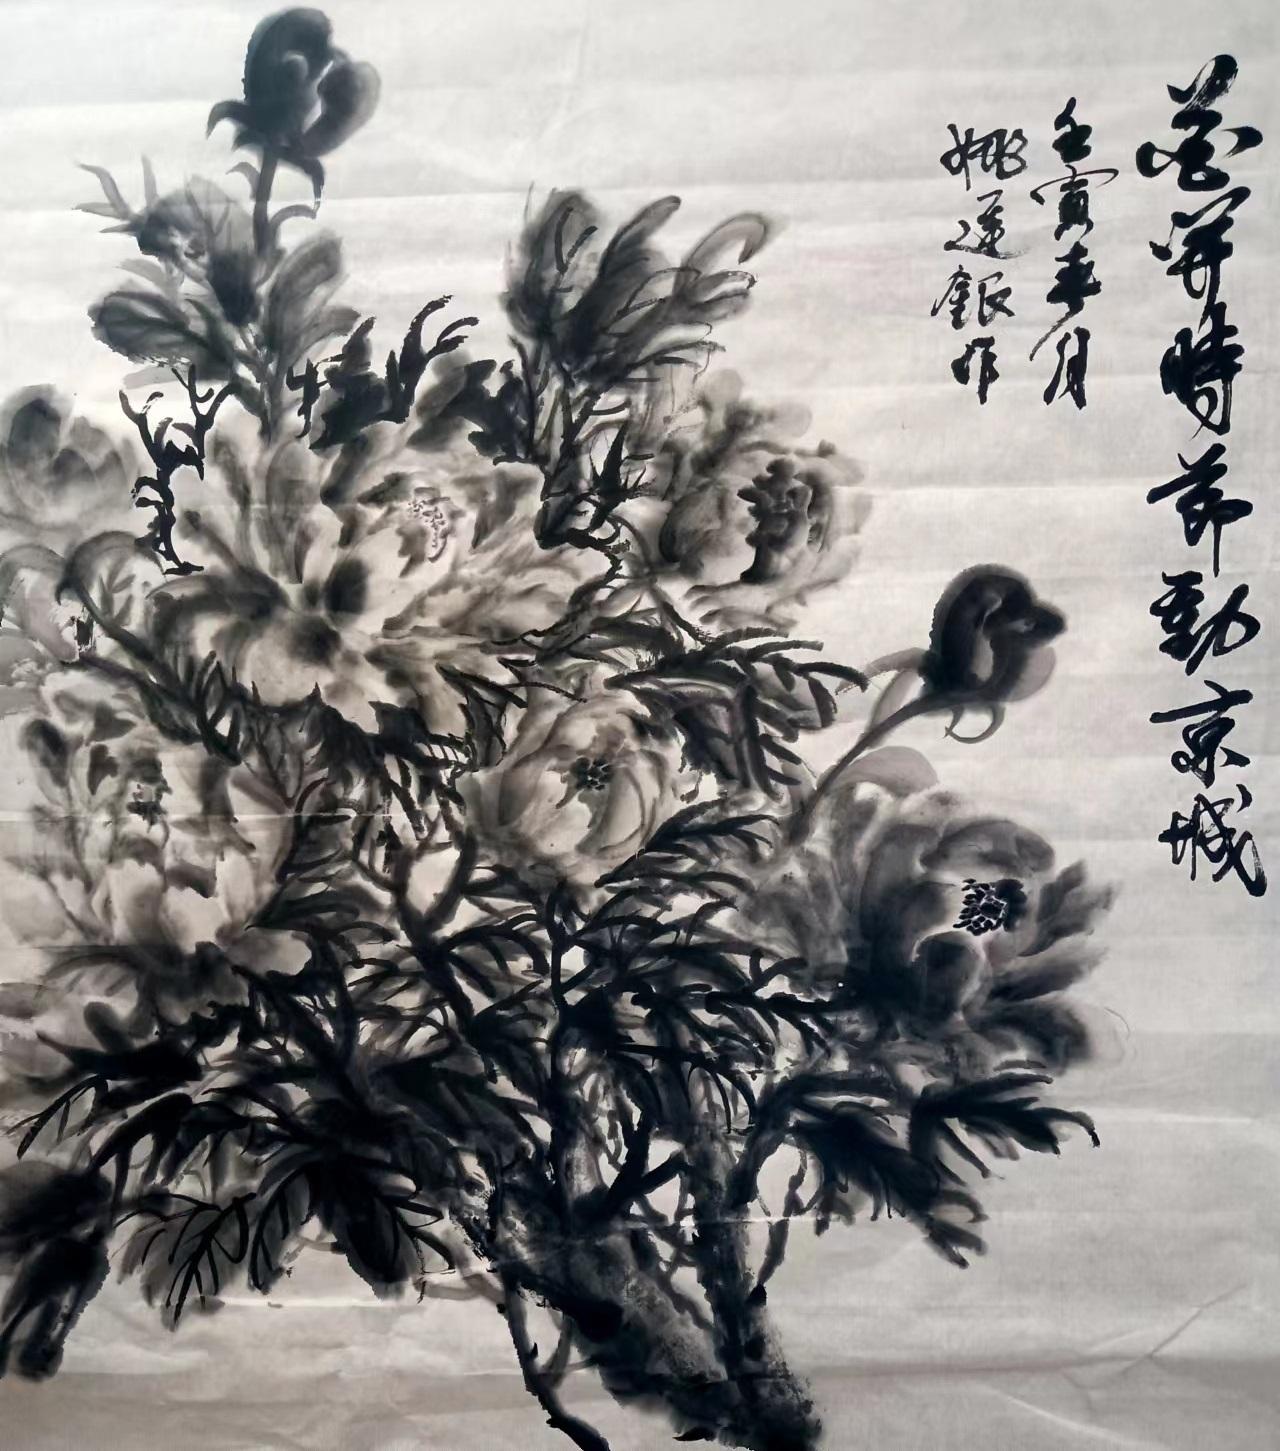 花開時節動京城
壬寅春月
姚莲銀作